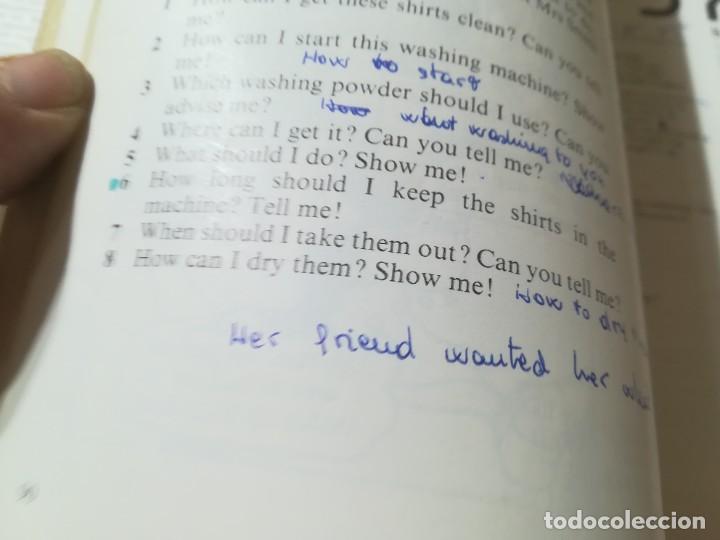 these shirts clean? Can you
Mrs
me?
2 How can I start this washing machine? Show
me!
How to start
3 Which washing powder should I use? Can you
advise me?
How what washing to
4 Where can I get it? Can you tell me?
5 What should I do? Show me!
6 How long should I keep the shirts in the
machine? Tell me!
7 When should I take them out? Can you tell me?
8 How can I dry them? Show me!
How to dry
Her friend wanted her
todocoleccion
todocoleccion.net